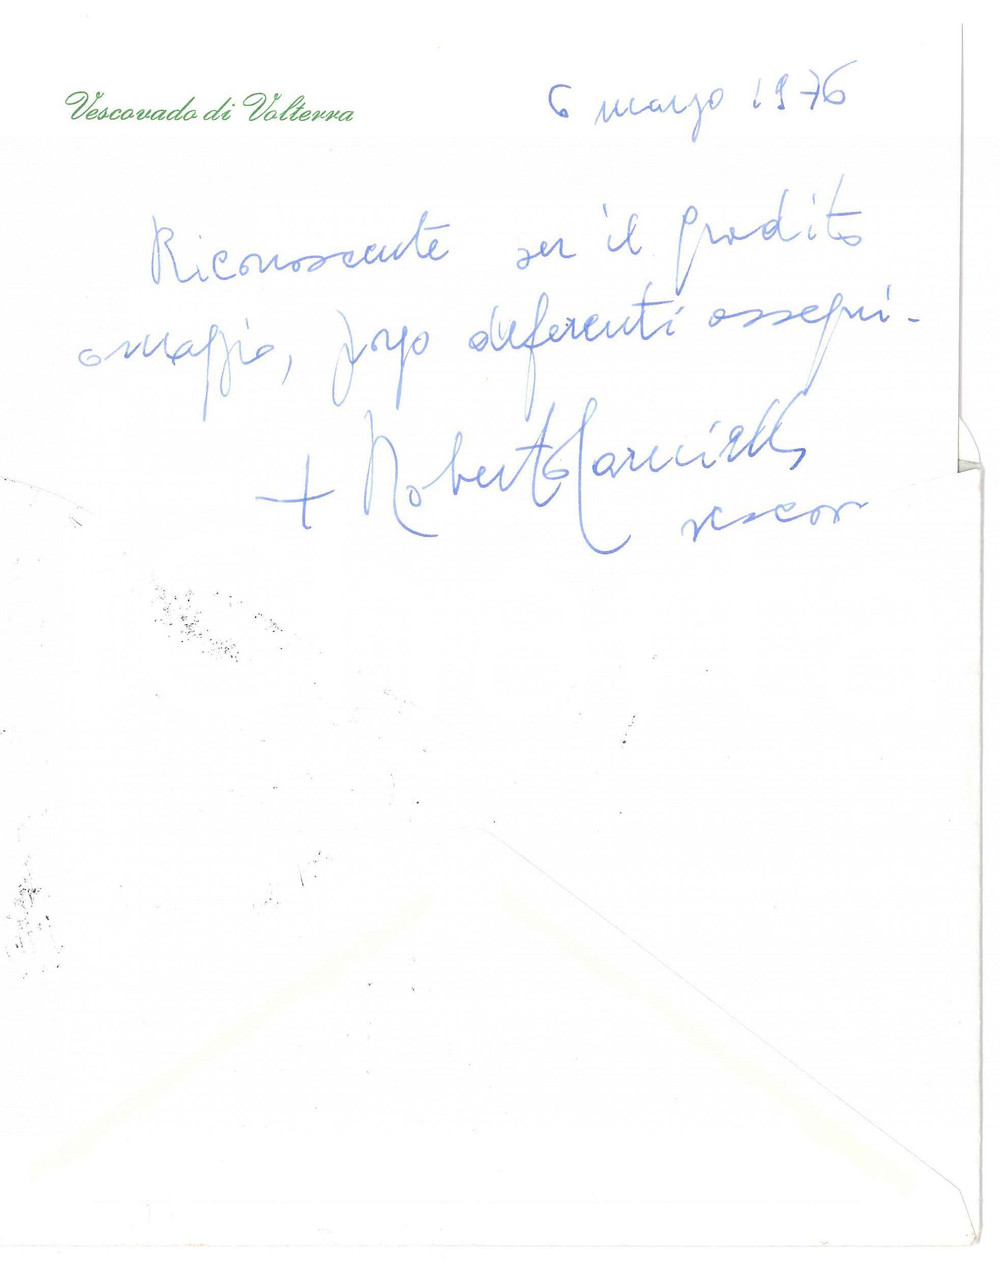 Vescovado di Volterra
6 marzo 1976
Riconoscente per il gradito
omaggio, porgo deferenti ossequi.
+ Roberto Carniello
vescovo